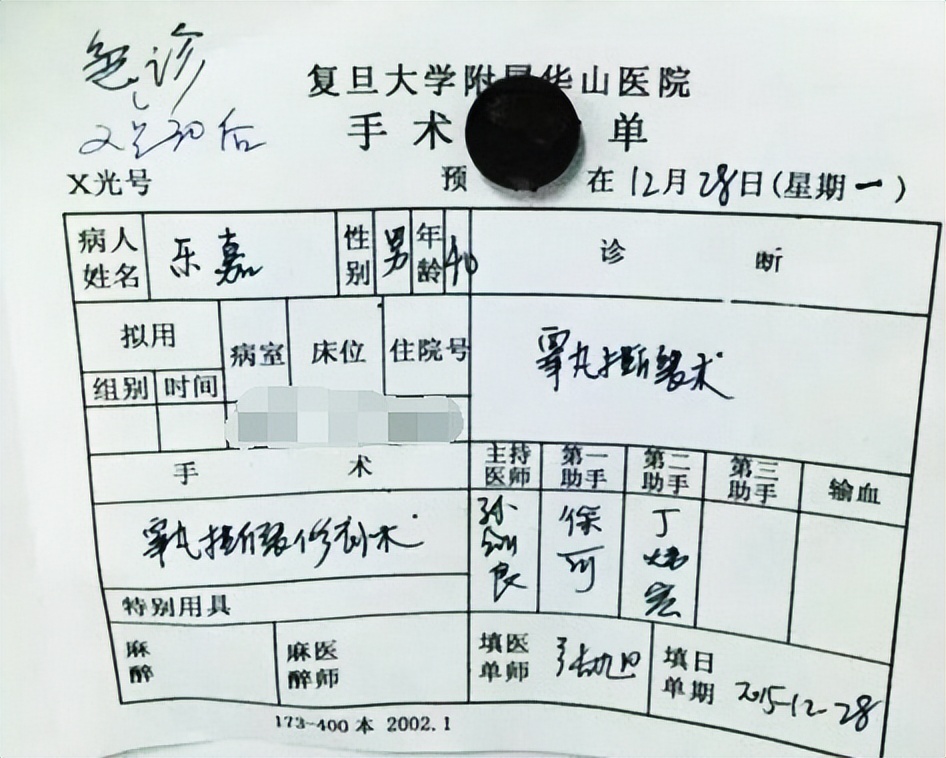 急诊
复旦大学附属华山医院
手术 单
X光号 预 在12月28日(星期一)
病人姓名 乐嘉 性别 男 年龄 40 诊断
拟用 病室 床位 住院号
组别 时间
睾丸 术
手术 主持医师 第一助手 第二助手 第三助手 输血
睾丸 修补术 孙 良 徐可 丁 宏
特别用具
麻醉 麻醉医师 填单医师 填单日期 2015-12-28
173-400本 2002.1